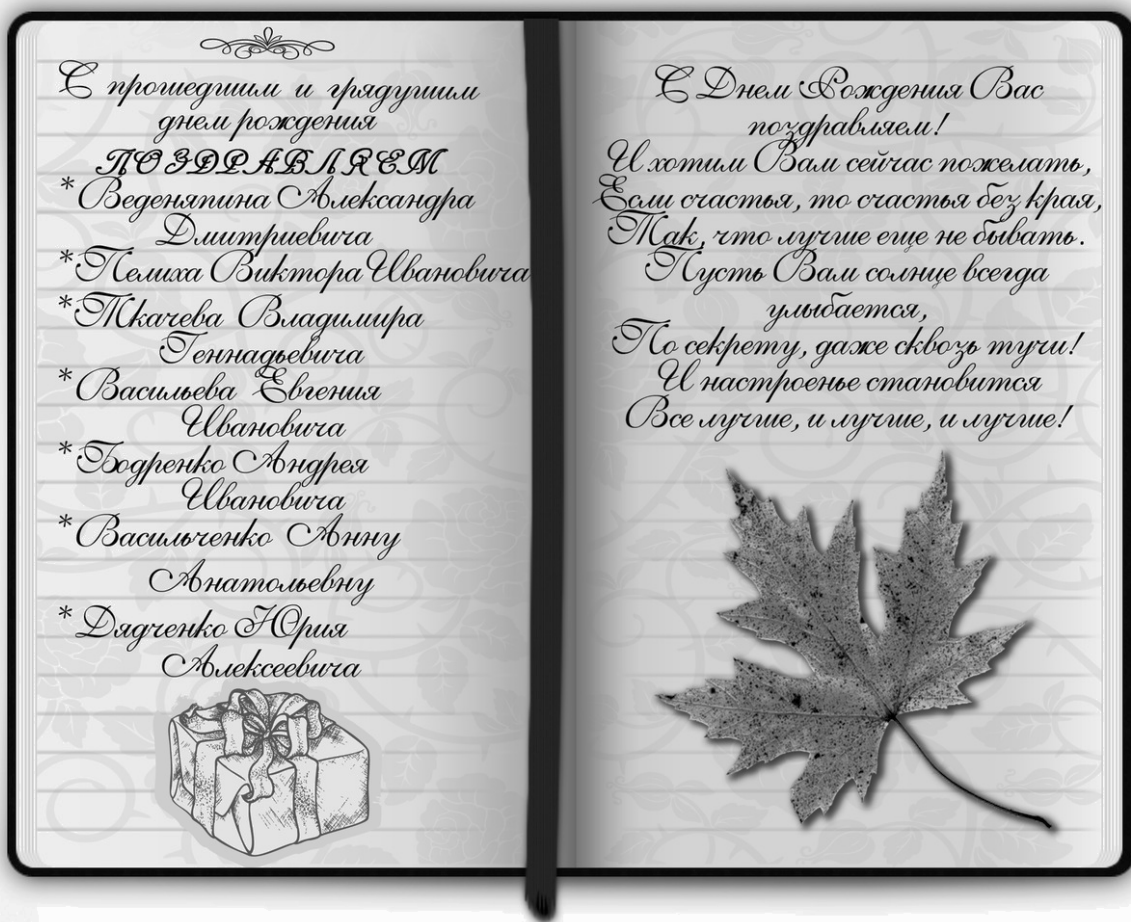 С прошедшим и грядущим
днем рождения
ПОЗДРАВЛЯЕМ
*Веденяпина Александра
Дмитриевича
*Пелиха Виктора Ивановича
*Ткачева Владимира
Геннадьевича
*Васильева Евгения
Ивановича
*Бодренко Андрея
Ивановича
*Васильченко Анну
Анатольевну
*Дядченко Юрия
Алексеевича
С Днем Рождения Вас
поздравляем!
И хотим Вам сейчас пожелать,
Если счастья, то счастья без края,
Так, что лучше еще не бывать.
Пусть Вам солнце всегда
улыбается,
По секрету, даже сквозь тучи!
И настроенье становится
Все лучше, и лучше, и лучше!